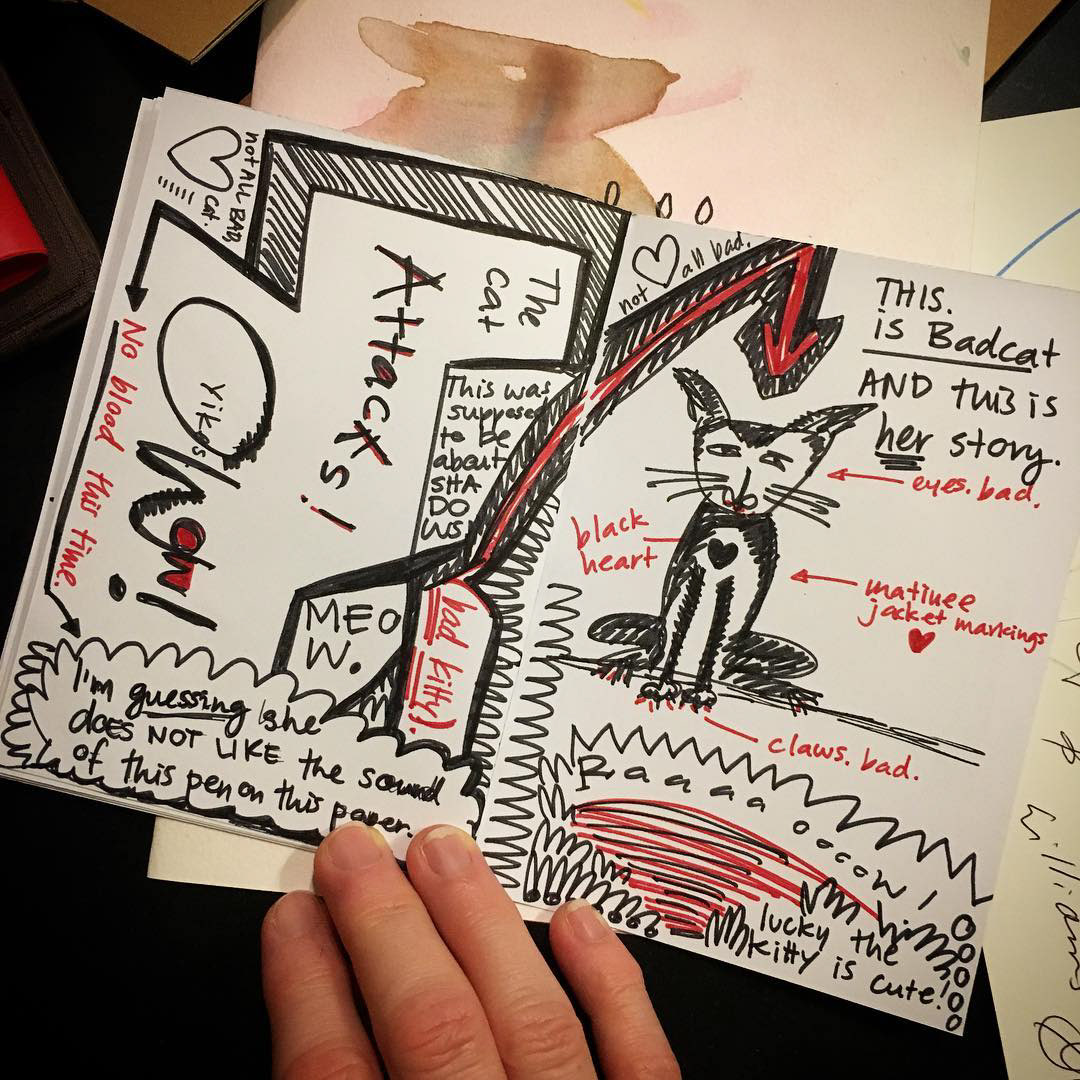 not ALL BAD,
cat.
The
cat
Attacks!
Yikes.
OWow!
No blood this time.
This was
supposed
to be
about
SHA
DO
WS!
MEO
W.
bad kitty).
I'm guessing she
does NOT LIKE the sound
of this pen on this paper.
not all bad.
THIS.
is Badcat
AND this is
her story.
eyes. bad.
black
heart
matinee
jacket markings
claws. bad.
Raaaaoooow!
lucky the
kitty is cute!